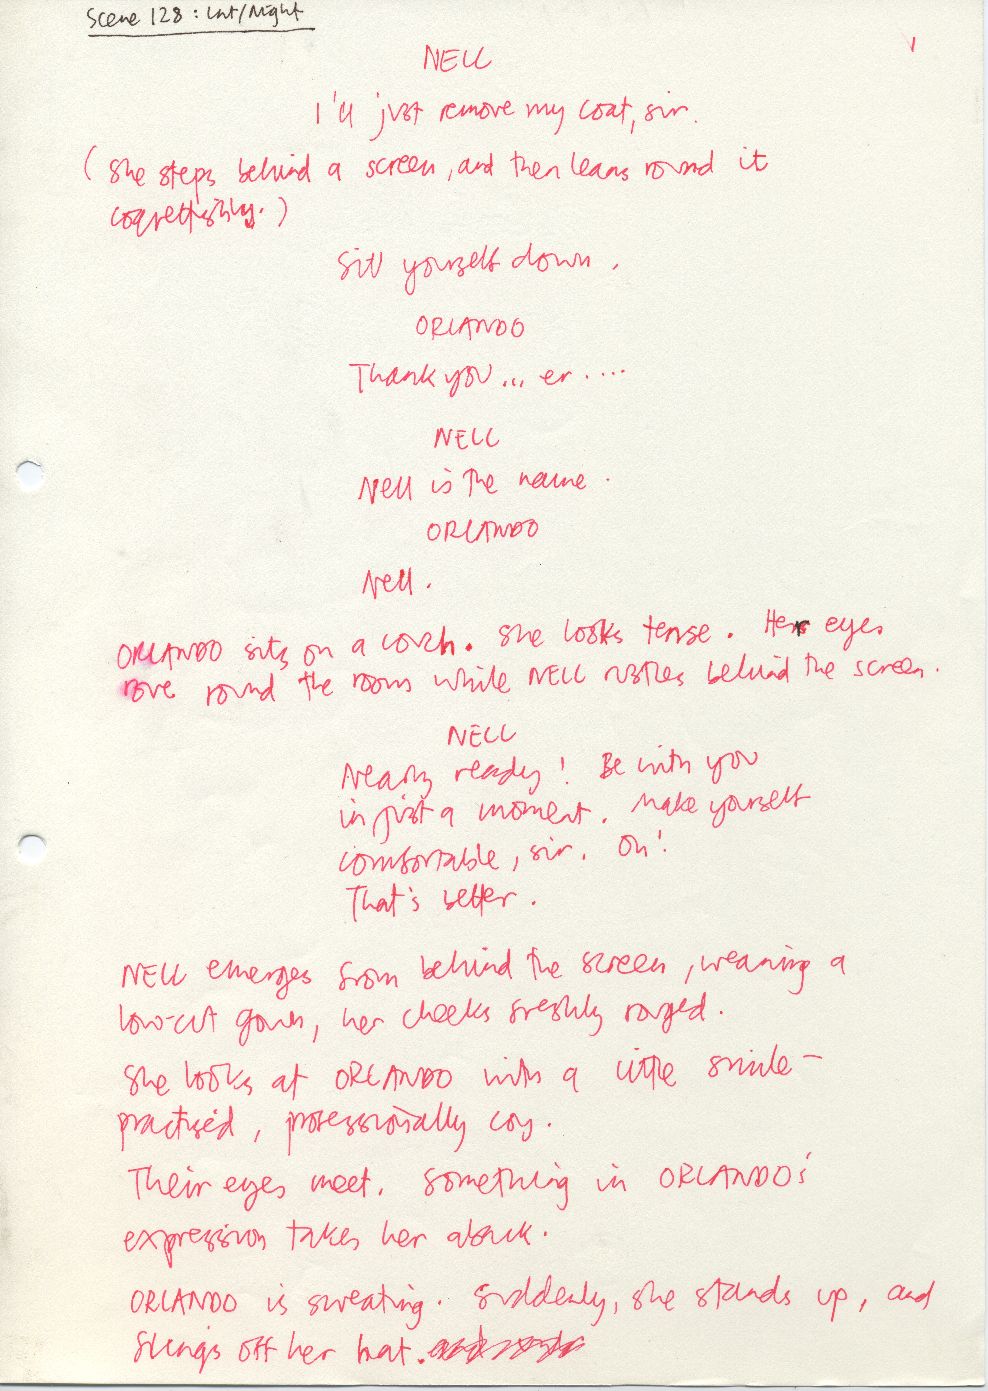 Scene 128 : Int/Night
1
NELL
I'll just remove my coat, sir.
(She steps behind a screen, and then leans round it
coquettishly.)
Sit yourself down.
ORLANDO
Thank you... er....
NELL
Nell is the name.
ORLANDO
Nell.
ORLANDO sits on a couch. She looks tense. Her eyes
rove round the room while NELL rustles behind the screen.
NELL
Nearly ready! Be with you
in just a moment. Make yourself
comfortable, sir. Oh!
That's better.
NELL emerges from behind the screen, wearing a
low-cut gown, her cheeks freshly rouged.
She looks at ORLANDO with a little smile —
practised, professionally coy.
Their eyes meet. Something in ORLANDO's
expression takes her aback.
ORLANDO is sweating. Suddenly, she stands up, and
flings off her hat.